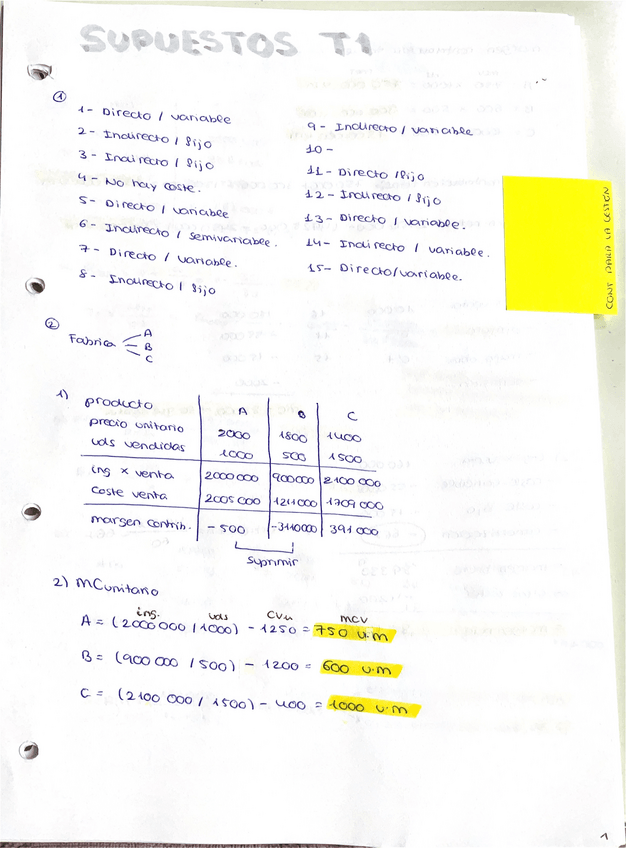 SUPUESTOS T1
①
1- Directo / variable
2- Indirecto / fijo
3- Indirecto / fijo
4- No hay coste.
5- Directo / variable
6- Indirecto / semivariable.
7- Directo / variable.
8- Indirecto / fijo
9- Indirecto / variable
10-
11- Directo / fijo
12- Indirecto / fijo
13- Directo / variable.
14- Indirecto / variable.
15- Directo/variable.
CONT PARA LA GESTIÓN
②
Fabrica A B C
1) producto A B C
precio unitario 2000 1800 1400
uds vendidas 1000 500 1500
ing x venta 2000 000 900000 2100 000
coste venta 2005 000 1211000 1709 000
margen contrib. -500 -3110000 391 000
Suprimir
2) MCunitario
ing. uds CVu MCV
A = (2000 000 / 1000) - 1250 = 750 u.m
B = (900 000 / 500) - 1200 = 600 u.m
C = (2100 000 / 1500) - 400 = 1000 u.m
1